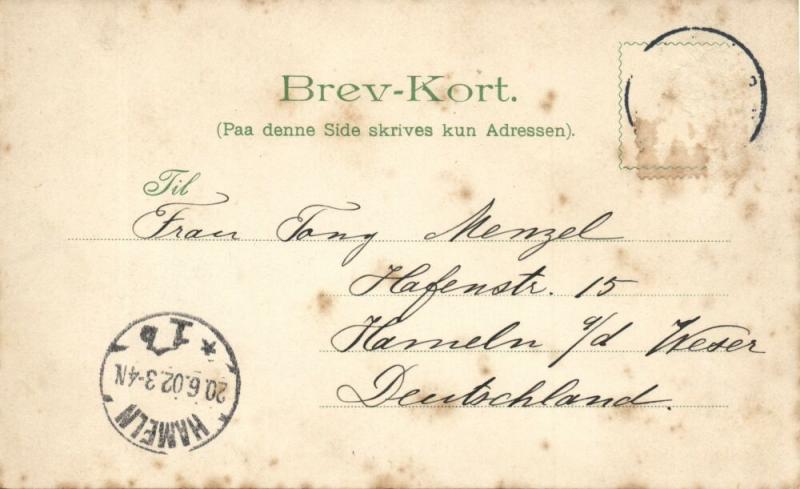 Brev-Kort.
(Paa denne Side skrives kun Adressen).
Til
Frau Tony Menzel
Hafenstr. 15
Hameln a/d Weser
Deutschland.
HAMELN
20.6.02.3-4N
* 1b